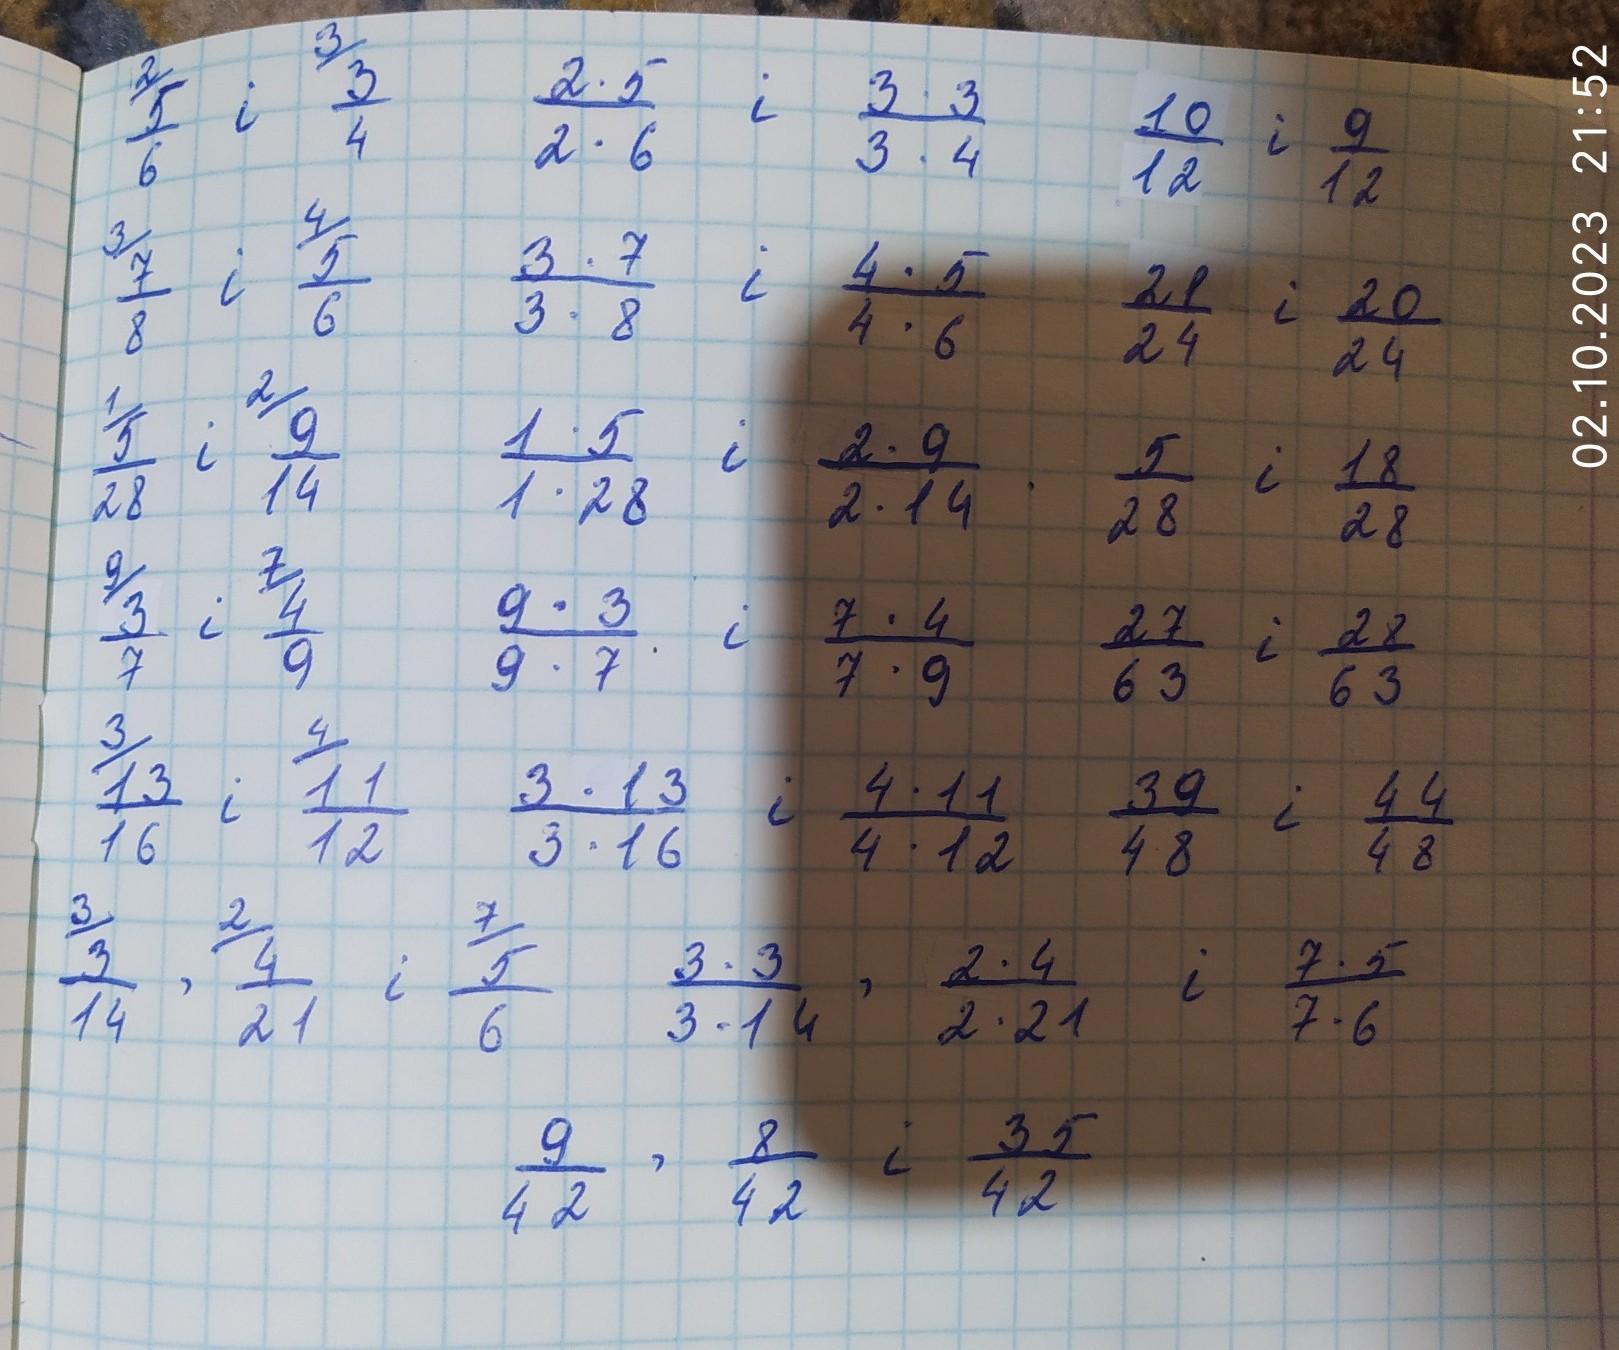 2/ 5/6 і 3/ 3/4 2·5/2·6 і 3·3/3·4 10/12 і 9/12
3/ 7/8 і 4/ 5/6 3·7/3·8 і 4·5/4·6 21/24 і 20/24
1/ 5/28 і 2/ 9/14 1·5/1·28 і 2·9/2·14 5/28 і 18/28
9/ 3/7 і 7/ 4/9 9·3/9·7 і 7·4/7·9 27/63 і 28/63
3/ 13/16 і 4/ 11/12 3·13/3·16 і 4·11/4·12 39/48 і 44/48
3/ 3/14 , 2/ 4/21 і 7/ 5/6 3·3/3·14 , 2·4/2·21 і 7·5/7·6
9/42 , 8/42 і 35/42
02.10.2023 21:52